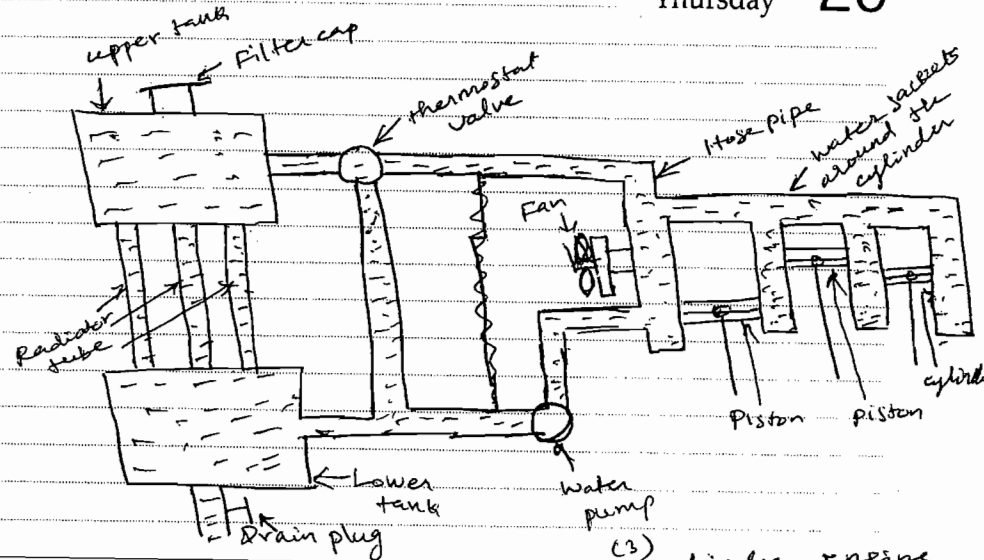 Thursday 20
upper tank
Filter cap
thermostat
valve
Hose pipe
water jackets
around the
cylinder
Fan
Radiator
tube
Piston
piston
cylinde
Lower
tank
water
pump
Drain plug
(3)
engine